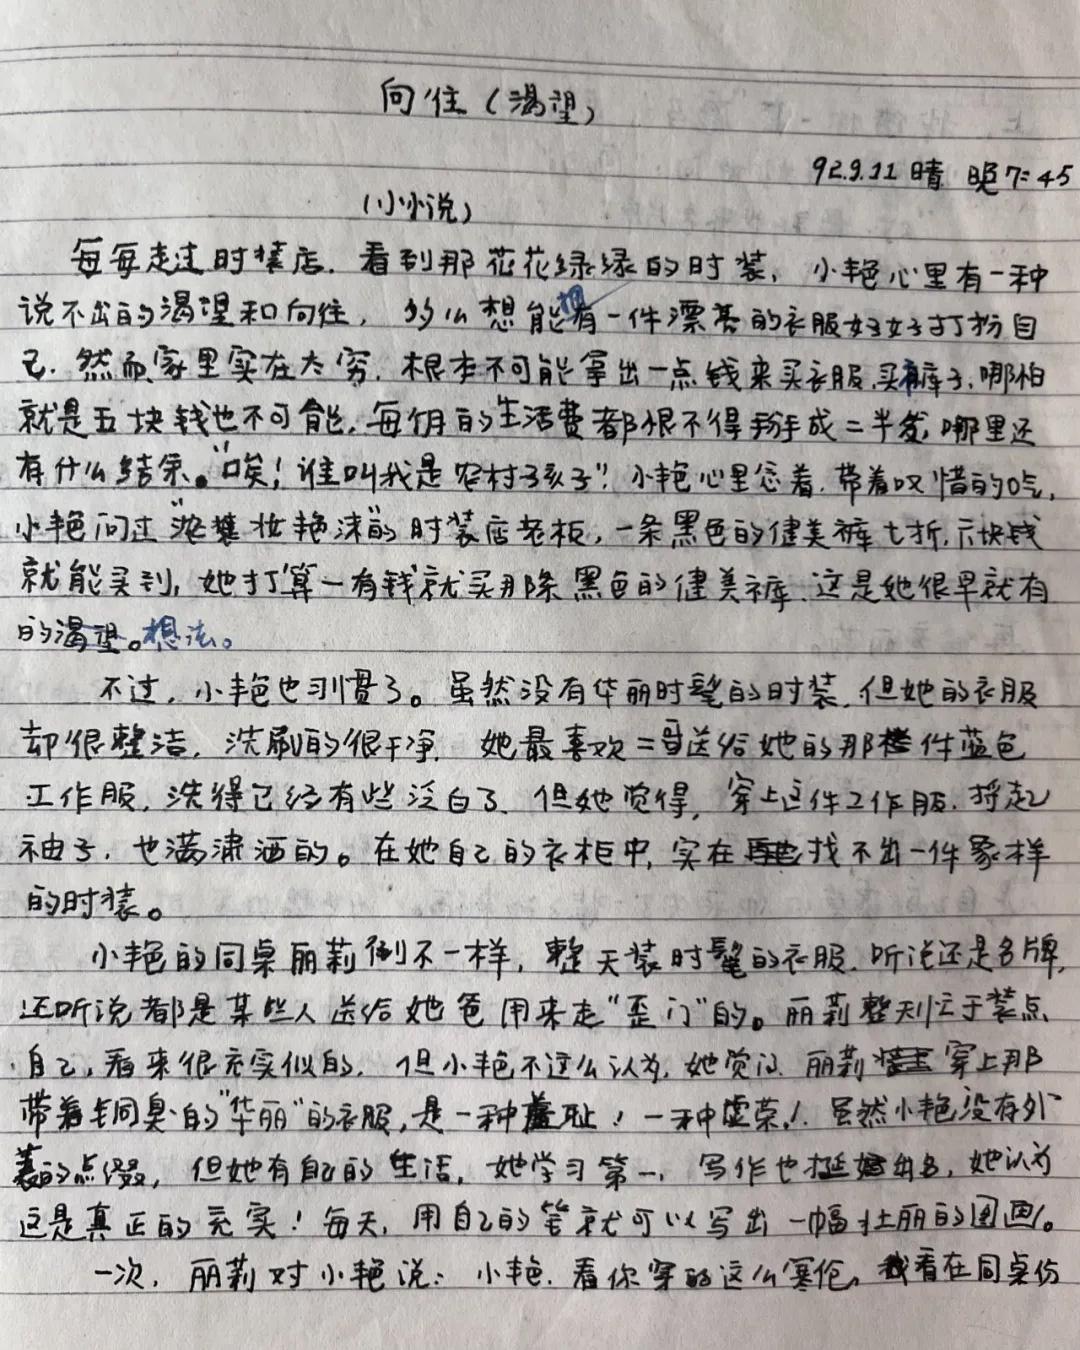 向住（渴望）
92.9.11 晴 晚7:45
（小小说）
每每走过时装店，看到那花花绿绿的时装，小艳心里有一种
说不出的渴望和向住，多么想能有一件漂亮的衣服好好打扮自
己。然而，家里实在太穷，根本不可能拿出一点钱来买衣服，买裤子，哪怕
就是五块钱也不可能，每月的生活费都恨不得掰成二半发，哪里还
有什么结余。"唉！谁叫我是农村孩子"！小艳心里念着，带着叹惜的口气，
小艳问过"浓装妆艳沫"的时装店老板，一条黑色的健美裤七折，六块钱
就能买到，她打算一有钱就买那条黑色的健美裤，这是她很早就有
的渴望。想法。
不过，小艳也习惯了。虽然没有华丽时髦的时装，但她的衣服
却很整洁，洗刷的很干净，她最喜欢二哥送给她的那件蓝色
工作服，洗得已经有些泛白了，但她觉得，穿上这件工作服，捋起
袖子，也满潇洒的。在她自己的衣柜中，实在找不出一件象样
的时装。
小艳的同桌丽莉倒不一样，整天装时髦的衣服，听说还是名牌，
还听说都是某些人送给她爸用来走"歪门"的。丽莉整天忙于装点
自己，看来很充实似的，但小艳不这么认为，她觉得丽莉穿上那
带着铜臭的"华丽"的衣服，是一种羞耻！一种虚荣！虽然小艳没有外
表的点缀，但她有自己的生活，她学习第一，写作也挺出名，她认为
这是真正的充实！每天，用自己的笔就可以写出一幅壮丽的图画。
一次，丽莉对小艳说：小艳，看你穿的这么寒伧，我看在同桌份